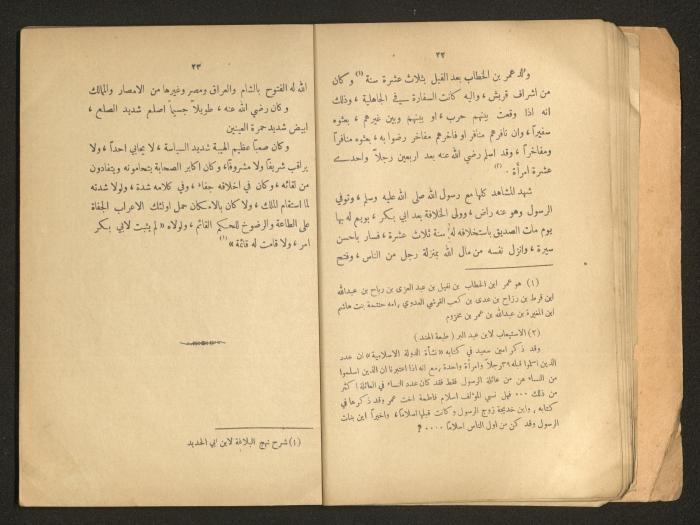 ٢٢
ولد عمر بن الخطاب بعد الفيل بثلاث عشرة سنة (١) وكان
من اشراف قريش ، واليه كانت السفارة في الجاهلية ، وذلك
انه اذا وقعت بينهم حرب ، او بينهم وبين غيرهم ، بعثوه
سفيراً ، وان نافرهم منافر او فاخرهم مفاخر رضوا به ، بعثوه منافراً
ومفاخراً ، وقد اسلم رضي الله عنه بعد اربعين رجلاً واحدى
عشرة امرأة . (٢)
شهد المشاهد كلها مع رسول الله صلى الله عليه وسلم ، وتوفي
الرسول وهو عنه راض ، وولي الخلافة بعد ابي بكر ، بويع له بها
يوم مات الصديق باستخلافه له سنة ثلاث عشرة ، فسار باحسن
سيرة ، وانزل نفسه من مال الله بمنزلة رجل من الناس ، وفتح
(١) هو عمر ابن الخطاب بن نفيل بن عبد العزى بن رياح بن عبدالله
ابن قرط بن رزاح بن عدي بن كعب القرشي العدوي ، امه حنتمة بنت هاشم
ابن المغيرة بن عبدالله بن عمر بن مخزوم
(٢) الاستيعاب لابن عبد البر (طبعة الهند)
وقد ذكر امين سعيد في كتابه «نشأة الدولة الاسلامية» ان عدد
الذين اسلموا قبله ٣٩ رجلاً وامرأة واحدة ، مع انه اذا اعتبرنا ان الذين اسلموا
من النساء هن من عائلة الرسول فقط فقد كان عدد النساء في العائلة اكثر
من ذلك ... فهل نسي المؤلف اسلام فاطمة اخت عمر وقد ذكرها في
كتابه ، واين خديجة زوج الرسول وكانت قبلها اسلاماً ، واخيراً اين بنات
الرسول وقد كن من اول الناس اسلاماً .... ؟
٢٣
الله له الفتوح بالشام والعراق ومصر وغيرها من الامصار والممالك
وكان رضي الله عنه ، طويلاً جسيماً اصلع شديد الصلع ،
ابيض شديد حمرة العينين
وكان صعباً عظيم الهيبة شديد السياسة ، لا يحابي احداً ، ولا
يراقب شريفاً ولا مشروفاً ، وكان اكابر الصحابة يتحامونه ويتفادون
من لقائه ، وكان في اخلاقه جفاء ، وفي كلامه شدة ، ولولا شدته
لما استقام الملك ، ولا كان بالامكان حمل اولئك الاعراب الجفاة
على الطاعة والرضوخ للحكم القائم ، ولولاه « لم يثبت لابي بكر
امر ، ولا قامت له قائمة » (١)
(١) شرح نهج البلاغة لابن ابي الحديد